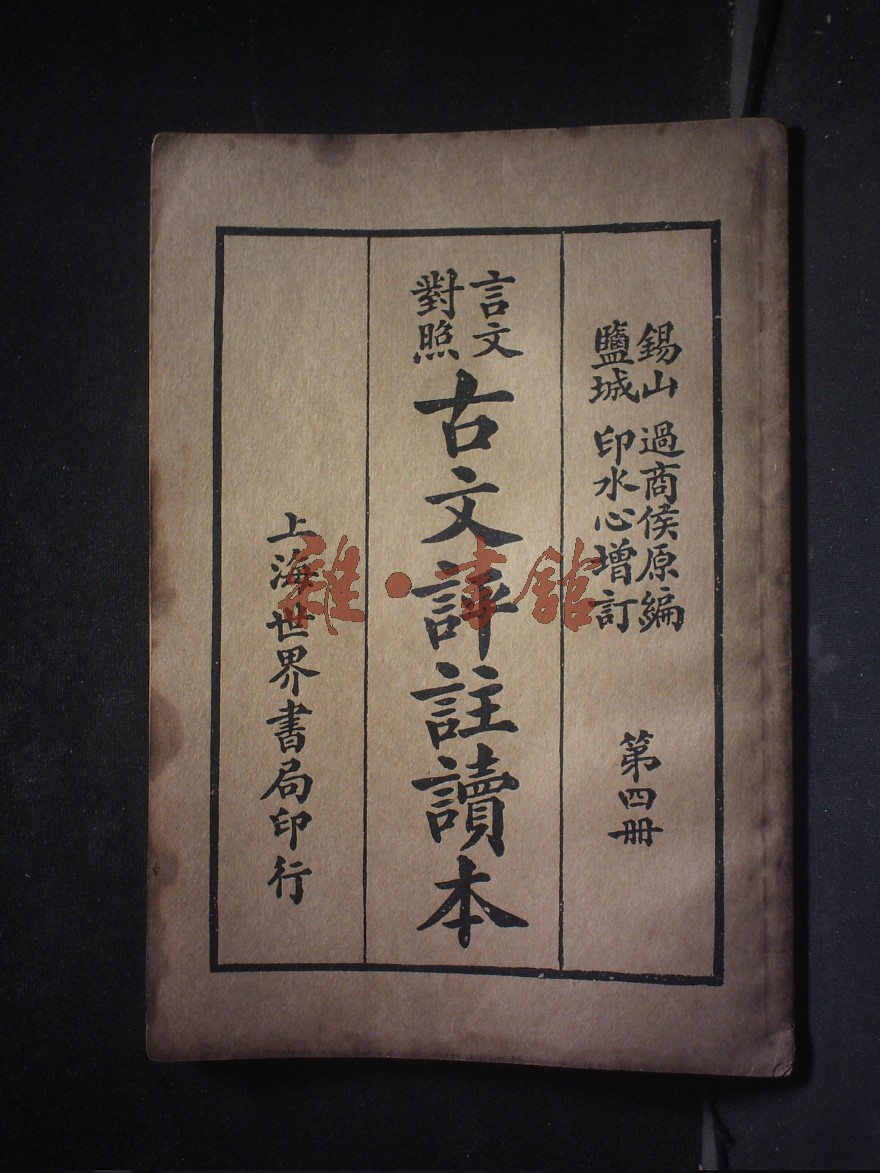 錫山 過商侯原編
鹽城 印水心增訂
第四冊
言文
對照
古文評註讀本
上海世界書局印行
雜·書館